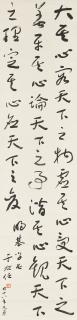 大其心容天下之物虛其心受天下之
善平其心論天下之事潛其心觀天下
之理定其心應天下之變
于右任